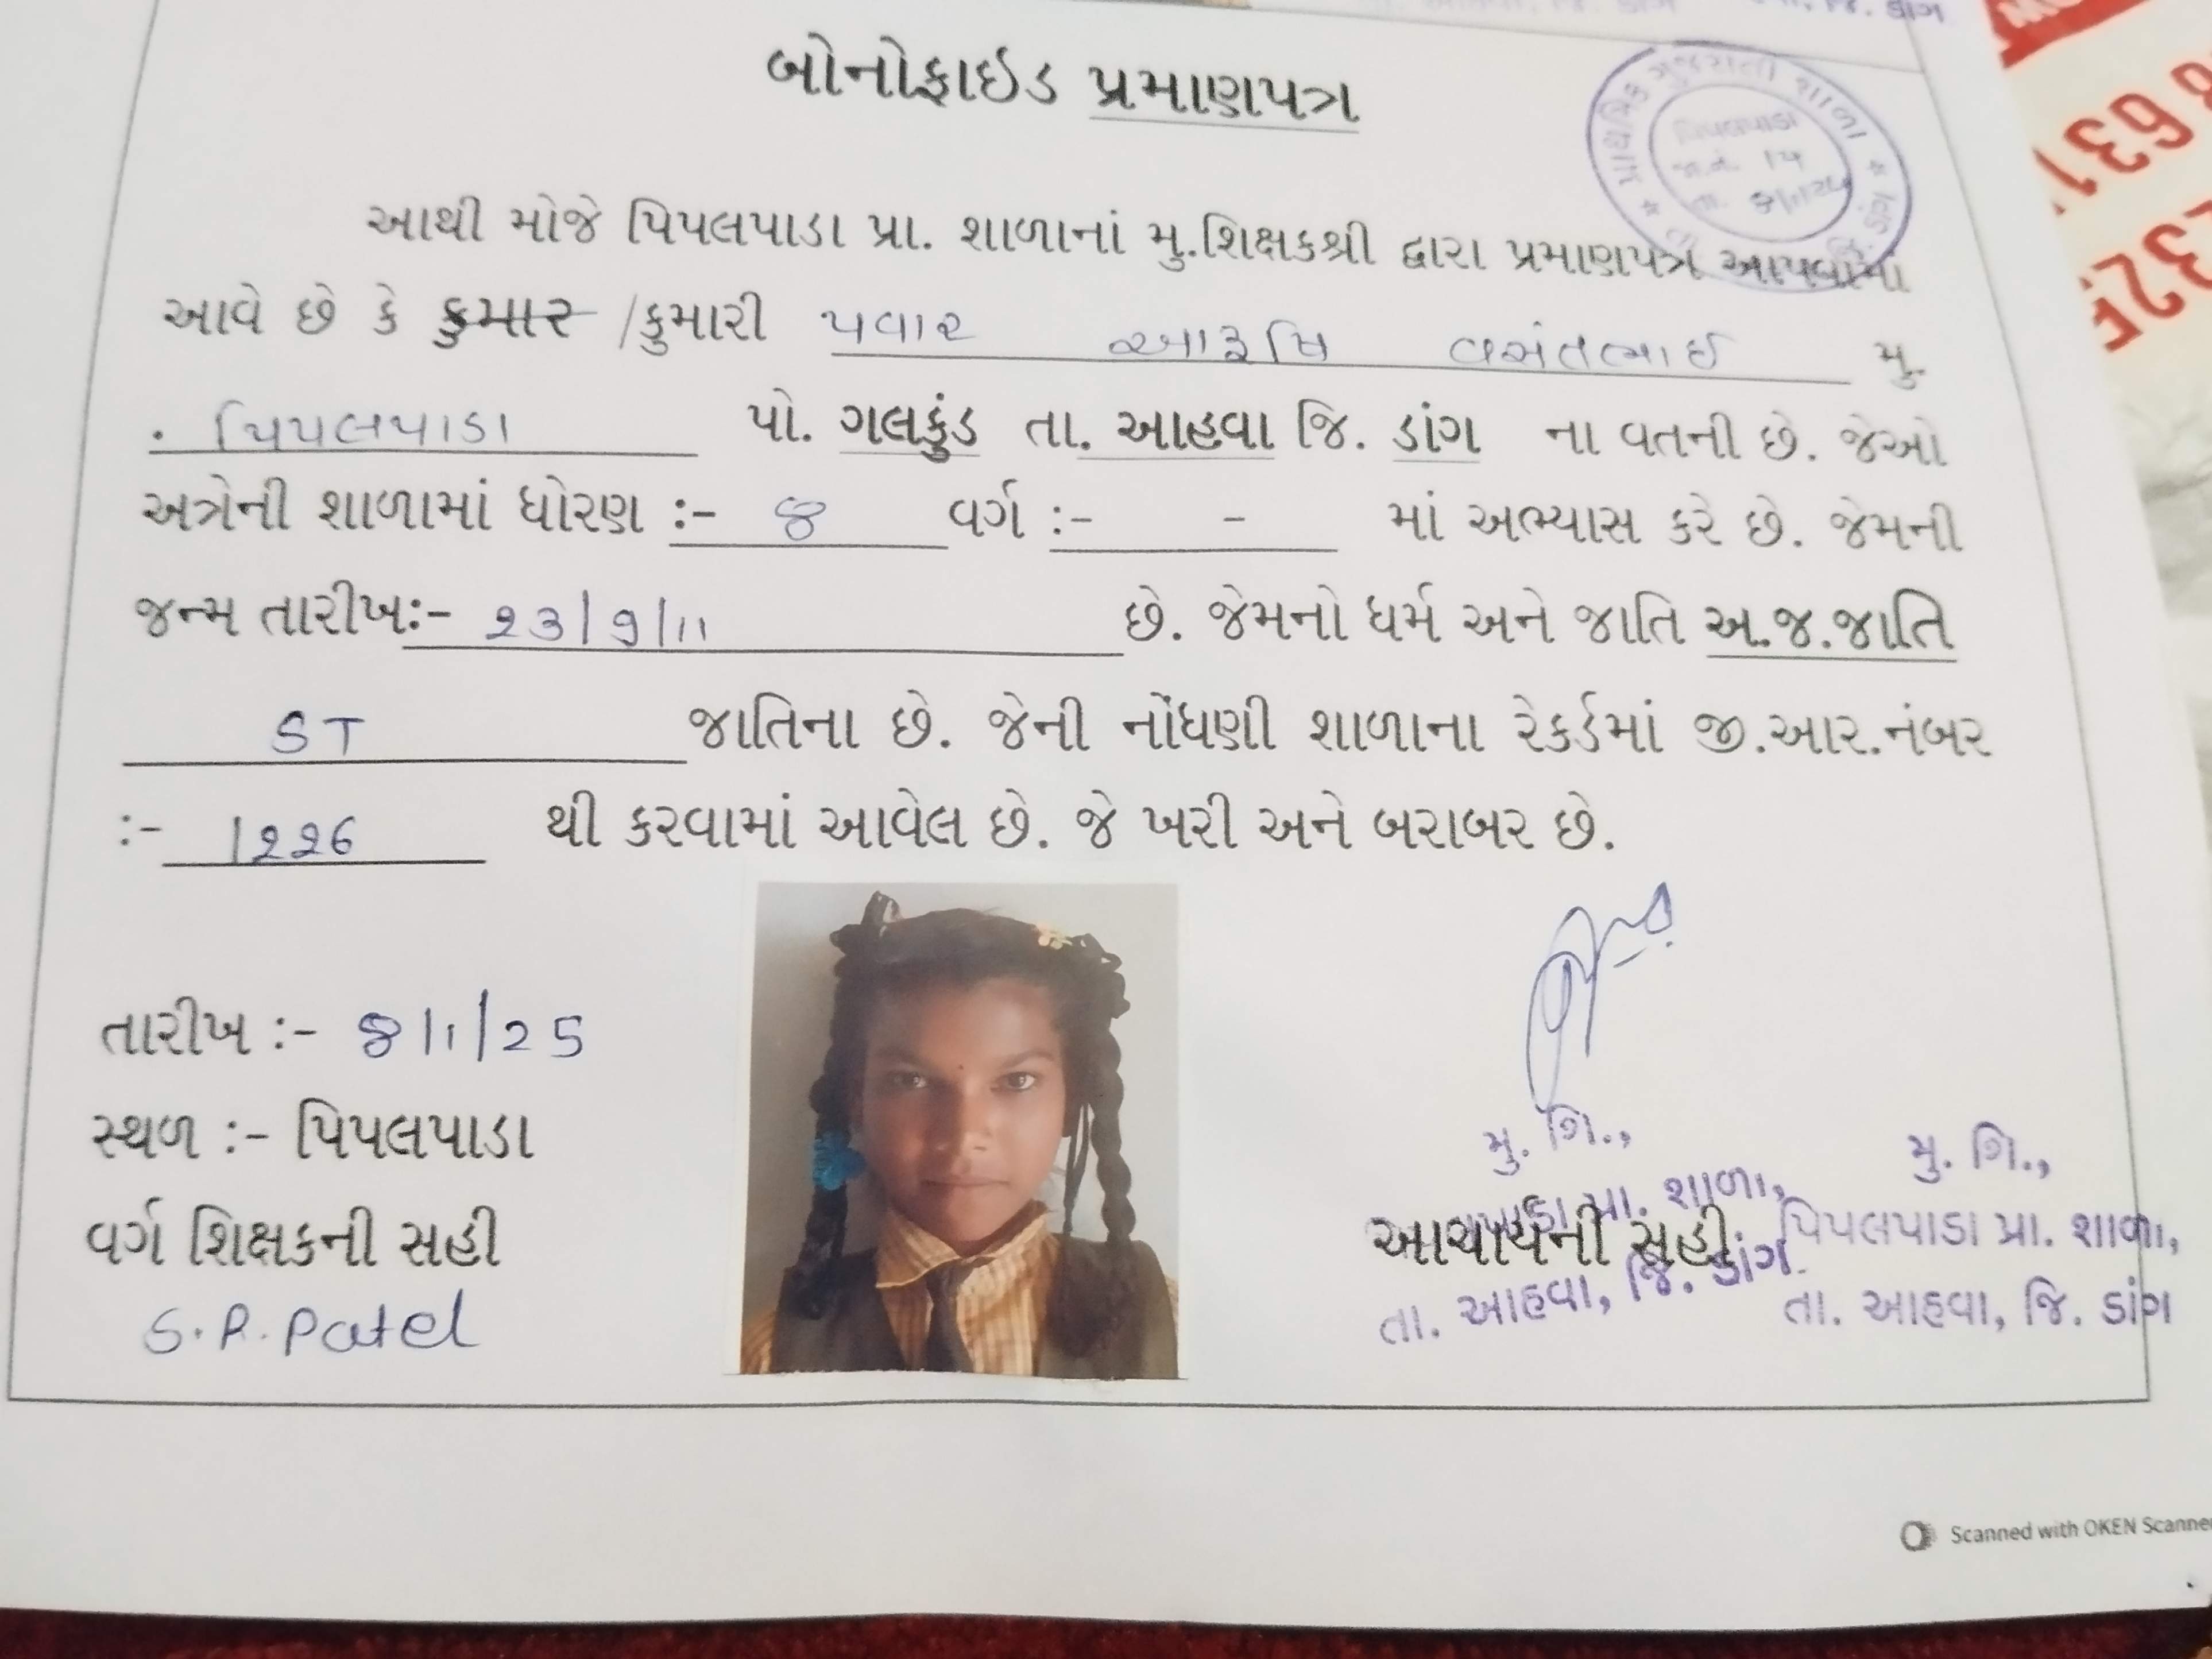 બોનોફાઇડ પ્રમાણપત્ર
પ્રાથમિક ગુજરાતી શાળા
પિપલપાડા
આથી મોજે પિપલપાડા પ્રા. શાળાનાં મુ.શિક્ષકશ્રી દ્વારા પ્રમાણપત્ર આપવામાં
આવે છે કે કુમાર /કુમારી પવાર આરૂષિ વસંતભાઈ મુ.
. પિપલપાડા પો. ગલકુંડ તા. આહવા જિ. ડાંગ ના વતની છે. જેઓ
અત્રેની શાળામાં ધોરણ :- ૪ વર્ગ :- - માં અભ્યાસ કરે છે. જેમની
જન્મ તારીખ:- ૨૩/૭/૧૧ છે. જેમનો ધર્મ અને જાતિ અ.જ.જાતિ
ST જાતિના છે. જેની નોંધણી શાળાના રેકર્ડમાં જી.આર.નંબર
:- 1226 થી કરવામાં આવેલ છે. જે ખરી અને બરાબર છે.
તારીખ :- 8/1/25
સ્થળ :- પિપલપાડા
વર્ગ શિક્ષકની સહી
S.R. Patel
મુ. શિ.,
પ્રા. શાળા,
આચાર્યની સહી
તા. આહવા, જિ. ડાંગ
મુ. શિ.,
પિપલપાડા પ્રા. શાળા,
તા. આહવા, જિ. ડાંગ
Scanned with OKEN Scanner